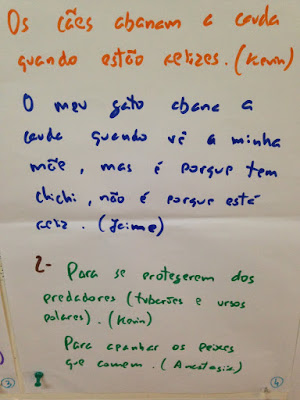 Os cães abanam a cauda
quando estão felizes. (Kevin)
O meu gato abana a
cauda quando vê a minha
mãe, mas é porque tem
chichi, não é porque está
feliz. (Jaime)
2- Para se protegerem dos
predadores (tubarões e ursos
polares). (Kevin)
Para apanhar os peixes
que comem. (Anastasia)
3
4